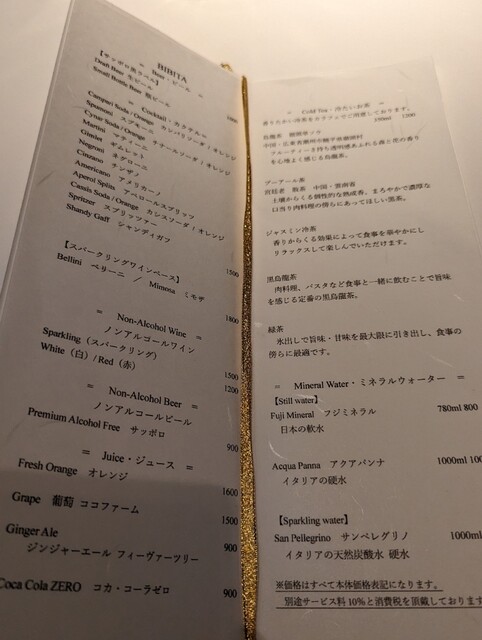 BIBITA
= Beer・ビール =
【サッポロ黒ラベル】
Draft Beer 生ビール
Small Bottle Beer 瓶ビール
1200
= Cocktail・カクテル =
Campari Soda / Orange カンパリソーダ / オレンジ
Spumoni スプモーニ
Cynar Soda / Orange チナールソーダ / オレンジ
Martini マティーニ
Gimlet ギムレット
Negroni ネグローニ
Cinzano チンザノ
Americano アメリカーノ
Aperol Splits アペロールスプリッツ
Cassis Soda / Orange カシスソーダ / オレンジ
Spritzer スプリッツァー
Shandy Gaff シャンディガフ
1500
【スパークリングワインベース】
Bellini ベリーニ / Mimosa ミモザ
1800
= Non-Alcohol Wine =
ノンアルコールワイン
Sparkling（スパークリング）
1500
White（白）/ Red（赤）
1200
= Non-Alcohol Beer =
ノンアルコールビール
Premium Alcohol Free サッポロ
900
= Juice・ジュース =
Fresh Orange オレンジ
1600
Grape 葡萄 ココファーム
1500
Ginger Ale
ジンジャーエール フィーヴァーツリー 900
Coca Cola ZERO コカ・コーラゼロ 900
= Cold Tea・冷たいお茶 =
香りたかい冷茶をカラフェでご用意しております。
1200
烏龍茶
フルーティーさ持ち透明感あふれる蘭と花の香り
を心地よく感じる烏龍茶。
プーアール茶
宮廷老 散茶 中国・雲南省
土壌からくる個性的な熟成香、まろやかで濃厚な
口当り肉料理の傍らにあってほしい黒茶。
ジャスミン冷茶
香りからくる効果によって食事を華やかにし
リラックスして楽しんでいただけます。
黒烏龍茶
肉料理、パスタなど食事と一緒に飲むことで旨味
を感じる定番の黒烏龍茶。
緑茶
氷出しで旨味・甘味を最大限に引き出し、食事の
傍らに最適です。
= Mineral Water・ミネラルウォーター =
【Still water】
Fuji Mineral フジミネラル 780ml 800
日本の軟水
Acqua Panna アクアパンナ 1000ml 100
イタリアの硬水
【Sparkling water】
San Pellegrino サンペレグリノ 1000ml
イタリアの天然炭酸水 硬水
※価格はすべて本体価格表記になります。
別途サービス料10%と消費税を頂戴しております